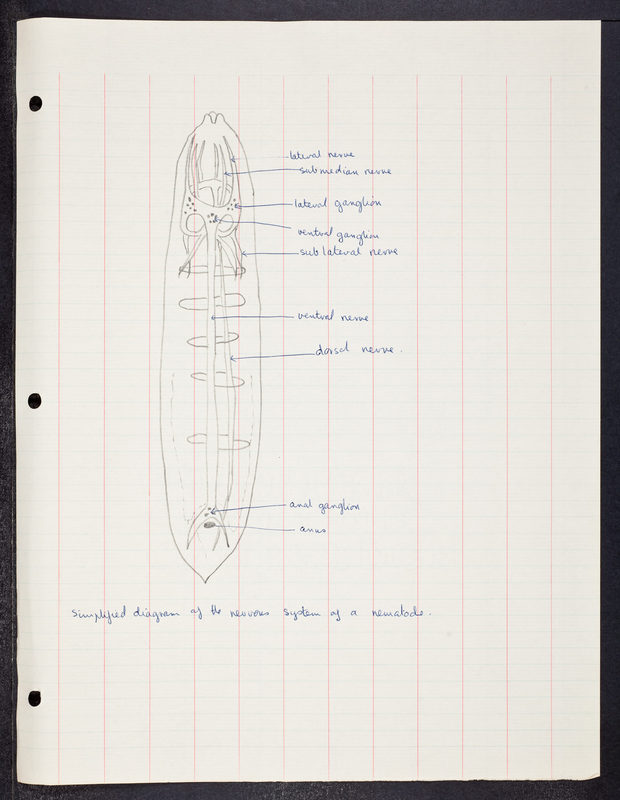 lateral nerve
submedian nerve
lateral ganglion
ventral ganglion
sub lateral nerve
ventral nerve
dorsal nerve.
anal ganglion
anus
Simplified diagram of the nervous system of a nematode.